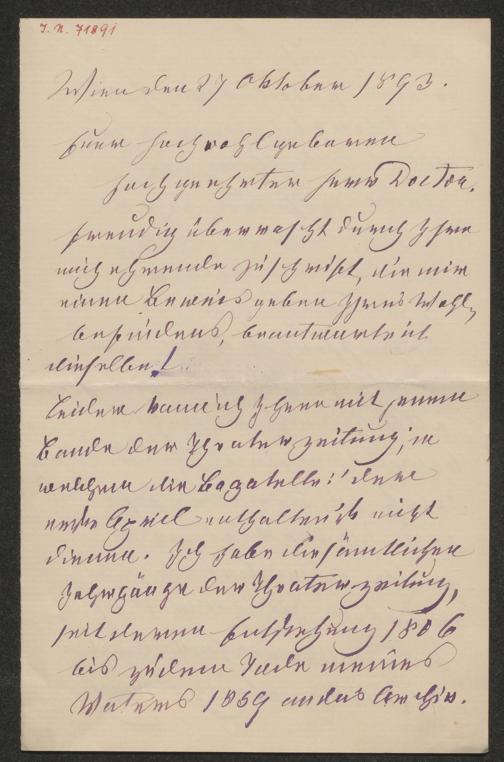 I. N. 71891
Wien den 27 Oktober 1893.
Euer Hochwohlgeboren
Hochgeehrter Herr Doctor.
Freudig überrascht durch Ihre
mich ehrende Zuschrift, die mir
einen Beweis geben Ihres Wohl-
befindens, beantworte ich
dieselbe!
Leider kann ich Ihnen mit jenem
Bande der Theaterzeitung, in
welchem die Bagatelle: der
erste April enthalten ist nicht
dienen. Ich habe die sämtlichen
Jahrgänge der Theaterzeitung,
seit deren Entstehung 1806
bis zu dem Tode meines
Vaters 1859 an das Archiv.